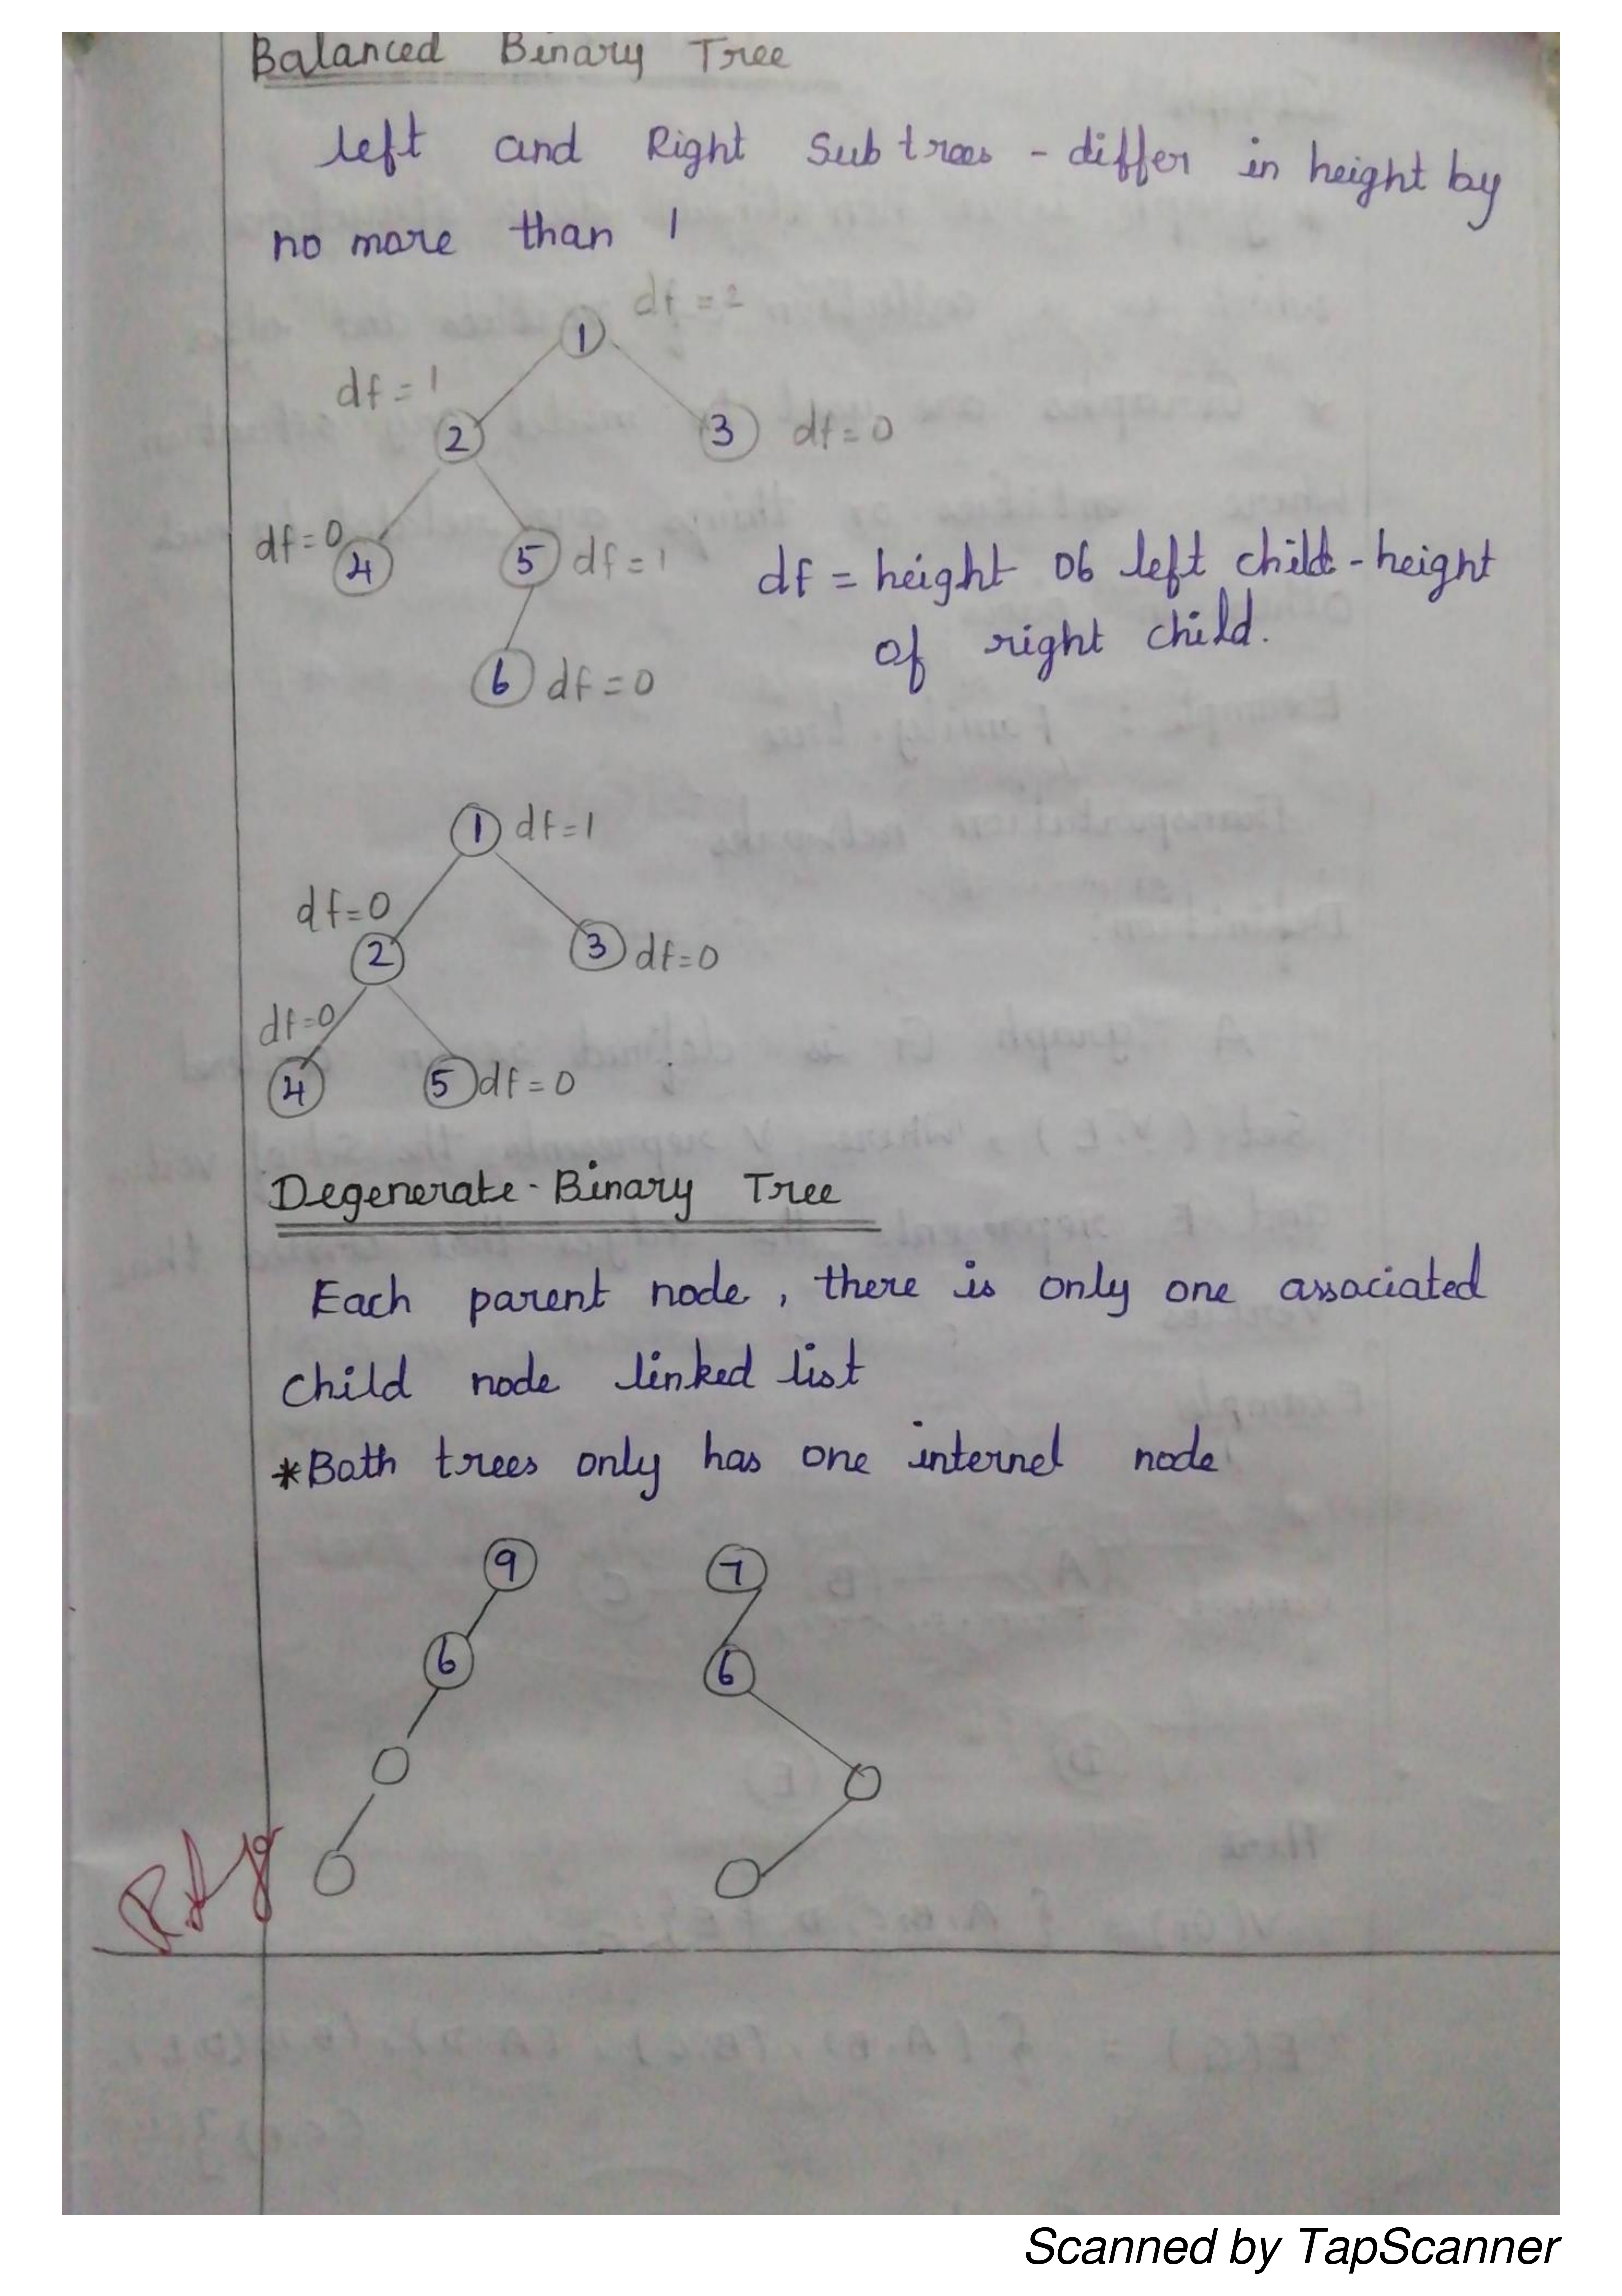 Balanced Binary Tree
left and Right Sub trees - differ in height by
no more than 1
df = 2
1
df = 1
2
3 df = 0
df = 0
4
5 df = 1
df = height of left child - height
of right child.
6 df = 0
1 df = 1
df = 0
2
3 df = 0
df = 0
4
5 df = 0
Degenerate - Binary Tree
Each parent node, there is only one associated
child node linked list
* Both trees only has one internel node
9
7
6
6
Scanned by TapScanner